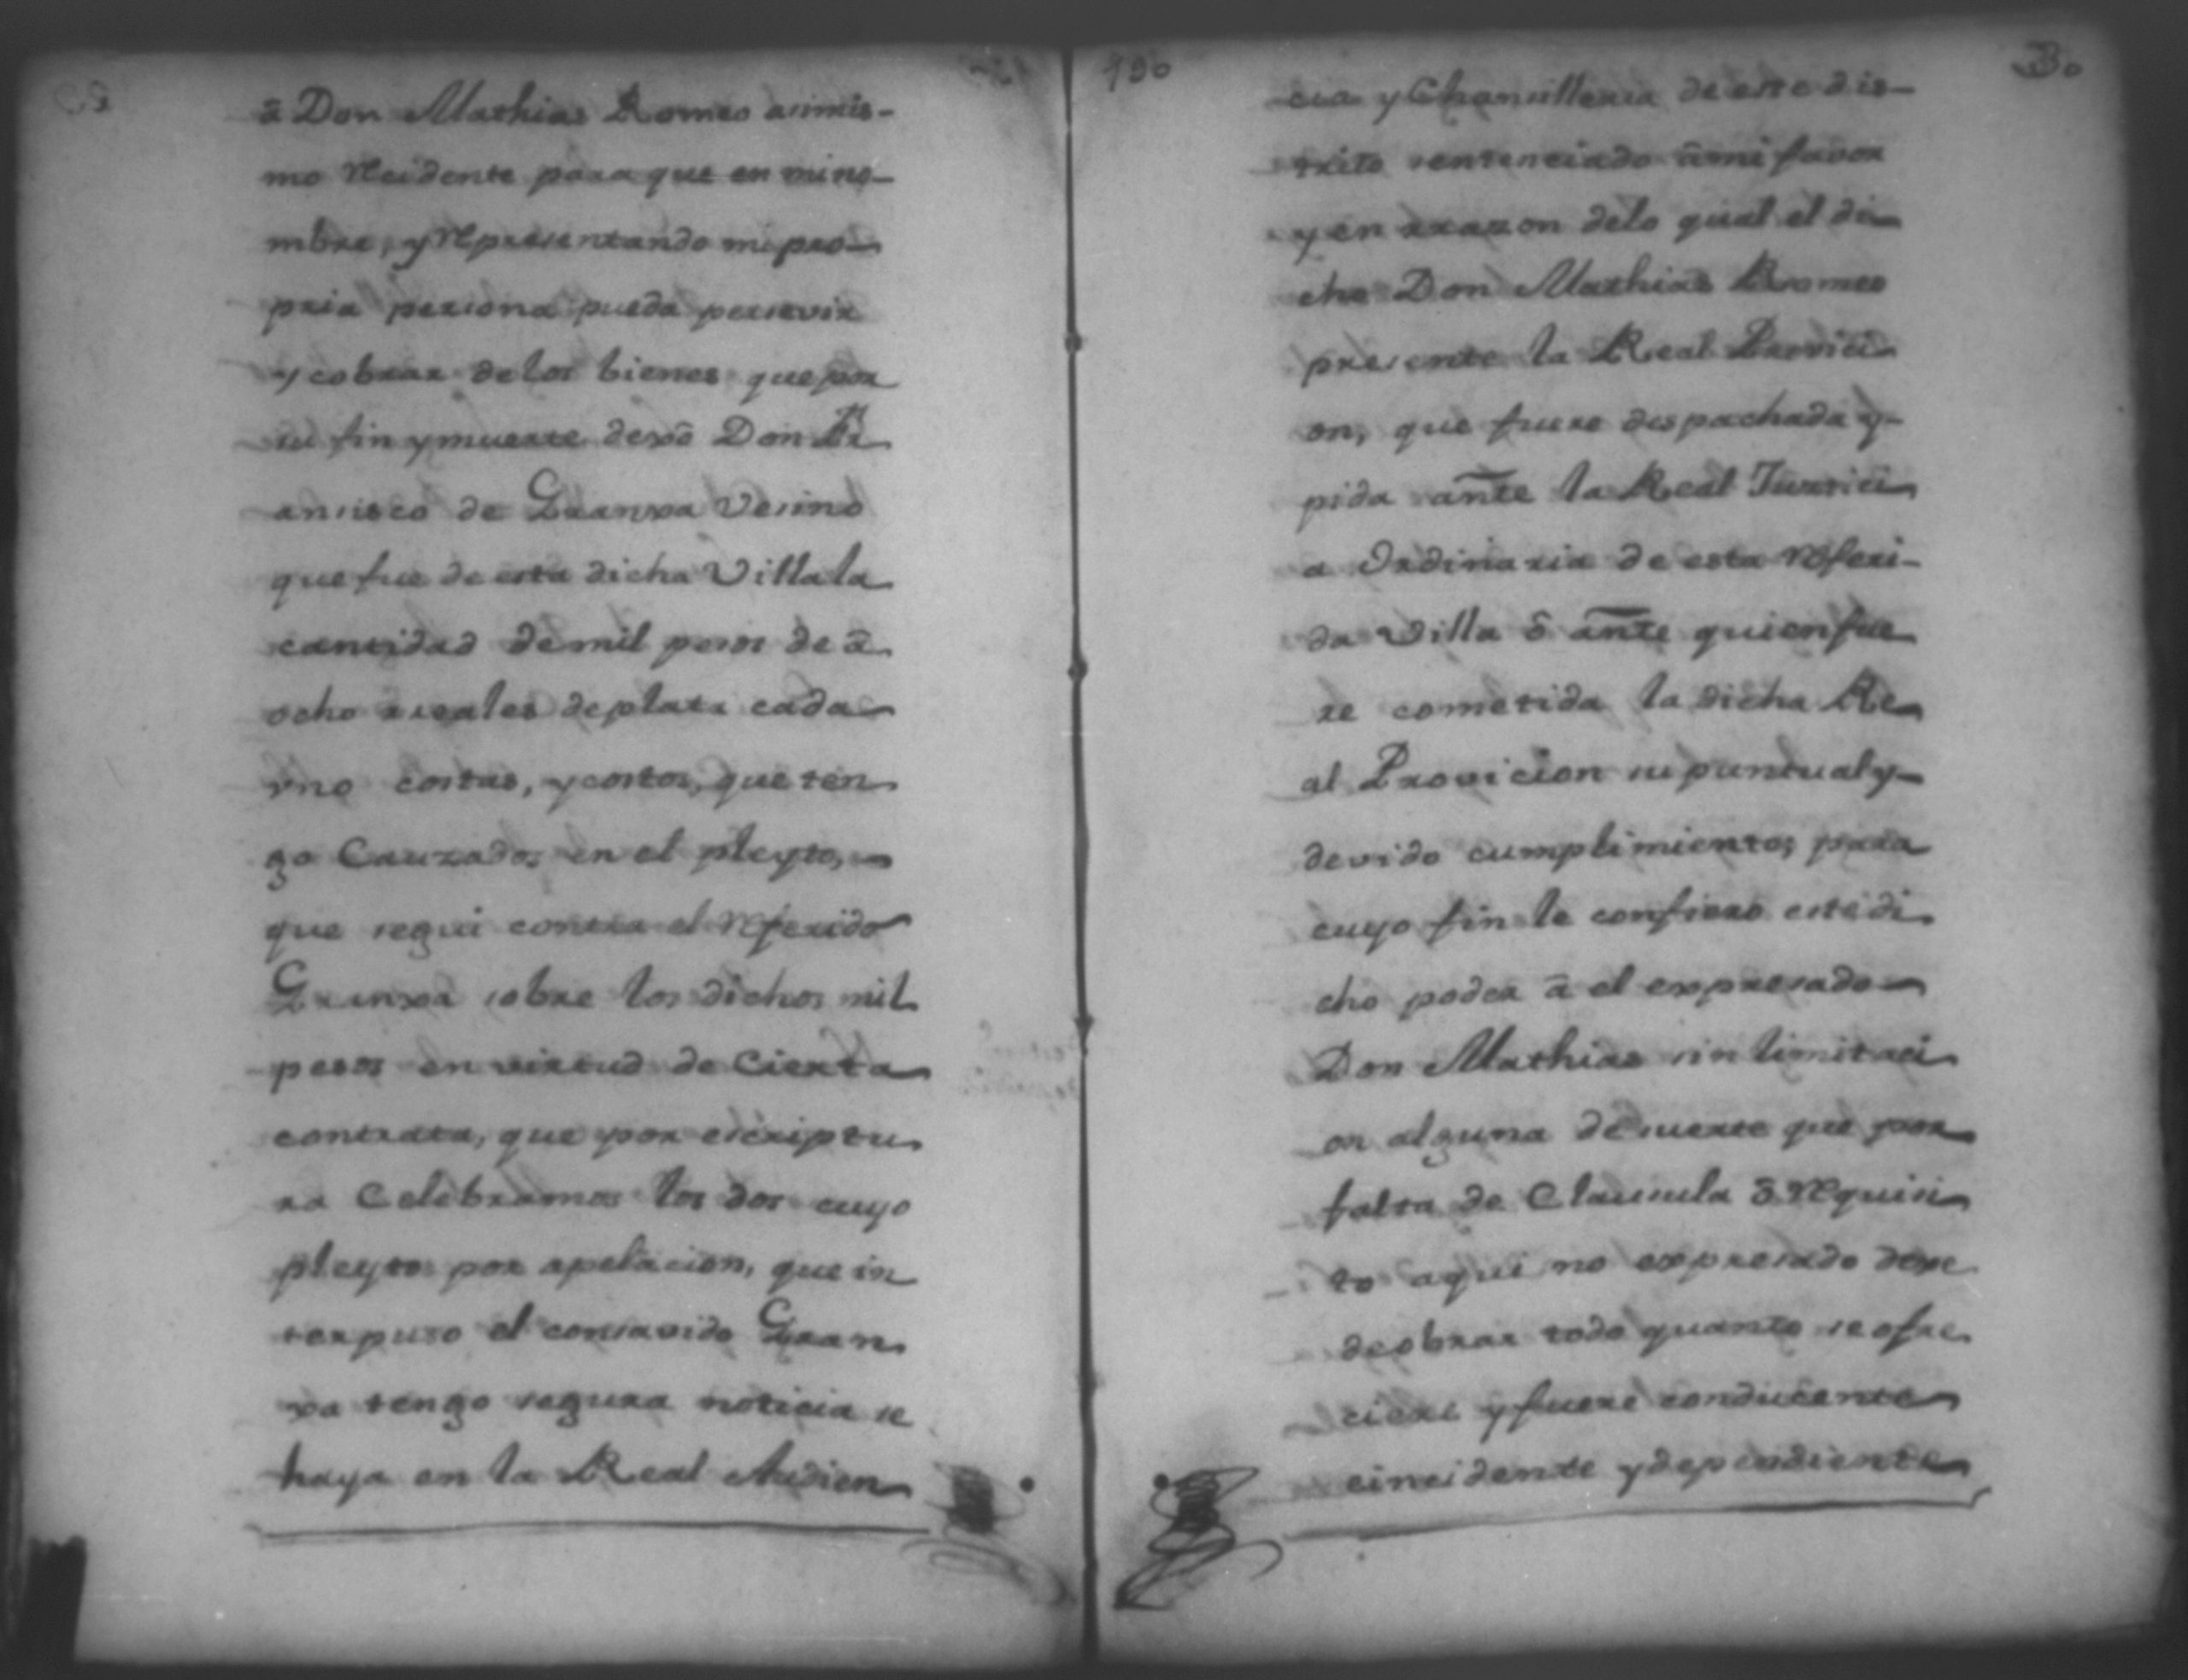 â Don Mathias Romeo asimis-
mo Residente para que en mi no-
mbre, y Representando mi pro-
pria persona pueda persevir
y cobrar de los bienes que por
su fin y muerte dexô Don Fr
ansisco de Granxa Vesino
que fue de esta dicha Villa la
cantidad de mil pesos de â
ocho rreales de plata cada
vno costas, y costos, que ten
go Cauzados en el pleyto,
que segui contra el Referido
Granxa sobre los dichos mil
pesos en virtud de Cierta
contrata, que por escriptu
ra Celebramos los dos cuyo
pleyto por apelacion, que in
terpuso el consavido Gran
xa tengo segura noticia se
haya en la Real Audien
190
cia y Chansilleria de este dis-
trito sentenciado â mi favor
y en rrazon de lo qual el di
cho Don Mathias Romeo
presente la Real Provici
on, que fuere despachada y
pida ante la Real Jusrici
a Ordinaria de esta Referi-
da Villa ô ante quien fue
re cometida la dicha Re
al Provicion su puntual y
devido cumplimiento, para
cuyo fin le confiero este di
cho poder â el expresado
Don Mathias sin limitaci
on alguna de suerte que por
falta de Clausula ô Requisi
to aqui no expresado dexe
de obrar todo quanto se ofre
ciere y fuere conducente
eincidente y dependiente